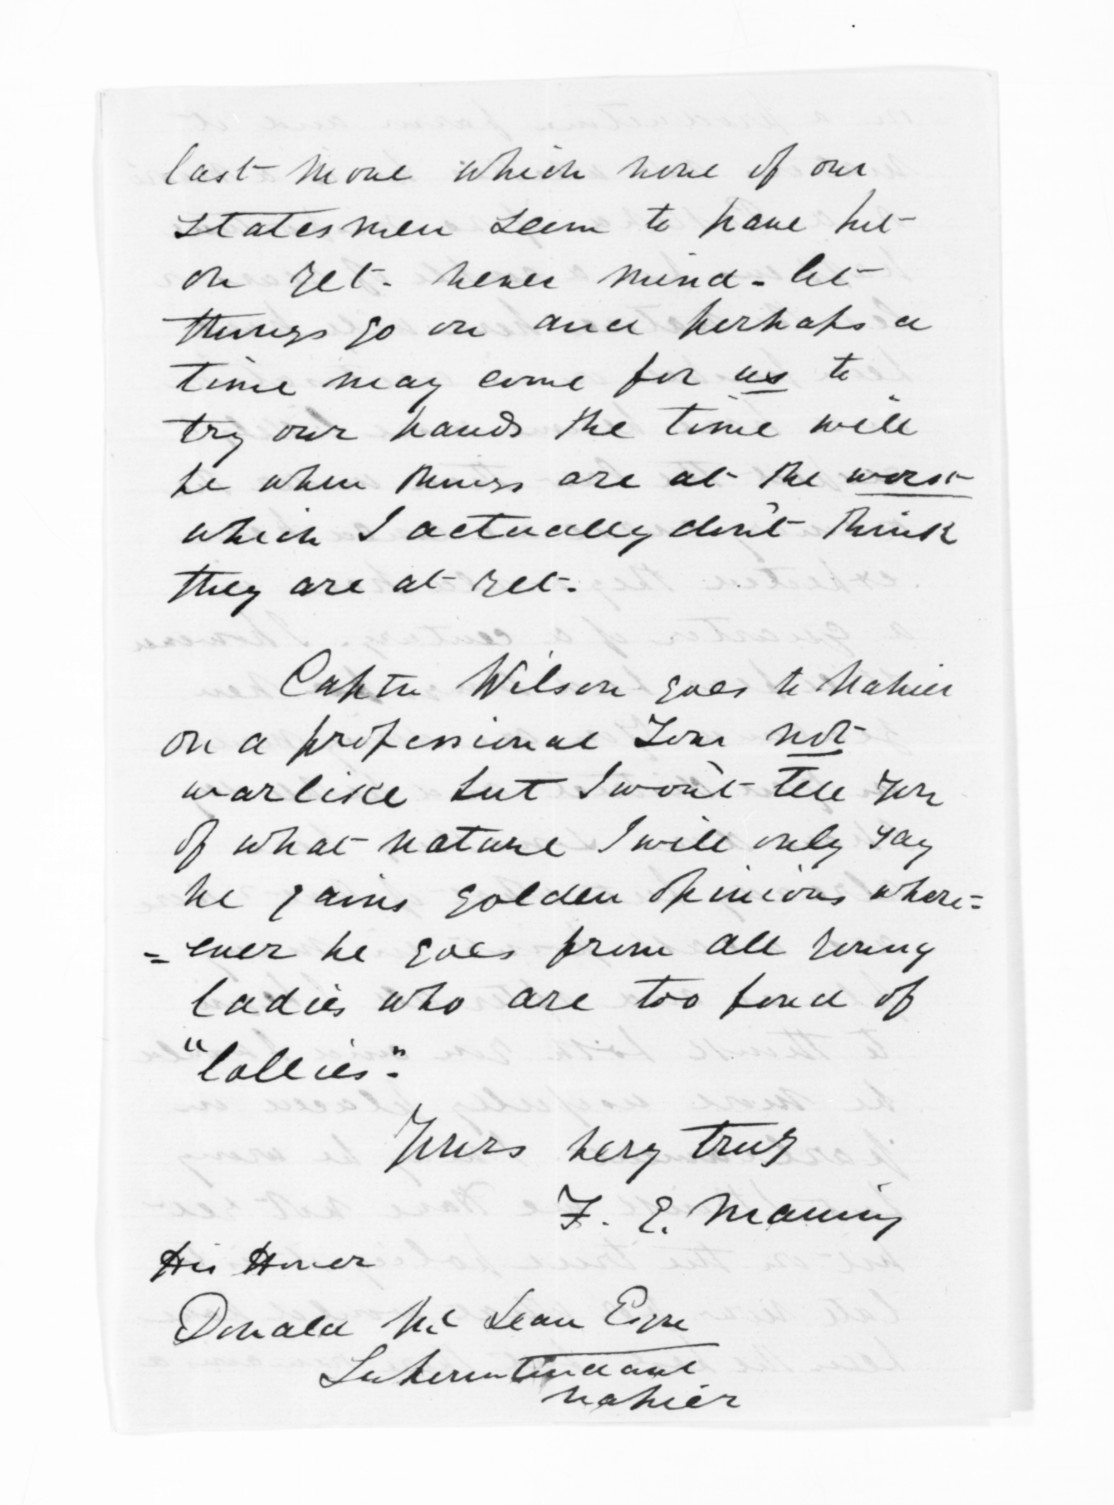 last move which none of our
statesmen seem to have hit
on yet. never mind - let
things go on and perhaps a
time may come for us to
try our hands the time will
be when things are at the worst
which I actually don't think
they are at yet.
Captn Wilson goes to Napier
on a professional Tour not
warlike but I won't tell you
of what nature I will only say
he gains golden opinions where=
=ever he goes from all young
ladies who are too fond of
"lollies".
Yours very truly
F. E. Maning
His Honor
Donald Mc Lean Esqre
Superintendant
Napier